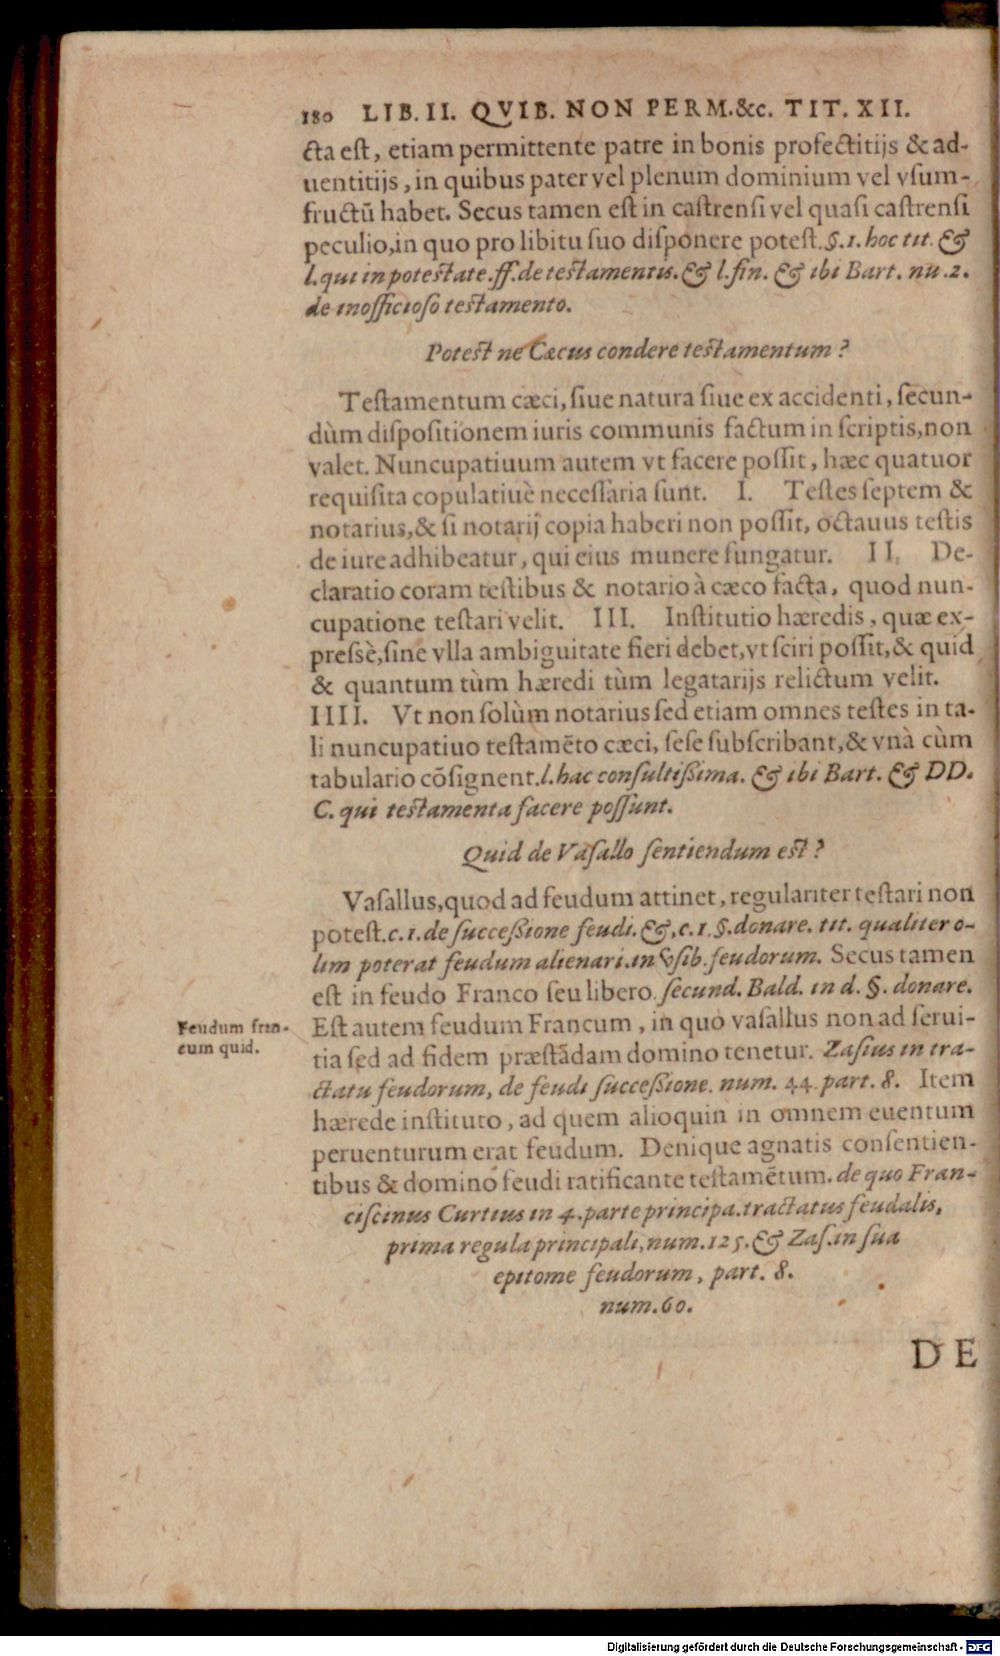 180 LIB. II. QVIB. NON PERM. &c. TIT. XII.
cta est, etiam permittente patre in bonis profectitijs & ad-
uentitijs, in quibus pater vel plenum dominium vel vsum-
fructū habet. Secus tamen est in castrensi vel quasi castrensi
peculio, in quo pro libitu suo disponere potest. §. 1. hoc tit. &
l. qui in potestate. ff. de testamentis. & l. fin. & ibi Bart. nu. 2.
de inofficioso testamento.
Potest ne Cæcus condere testamentum?
Testamentum cæci, siue natura siue ex accidenti, secun-
dùm dispositionem iuris communis factum in scriptis, non
valet. Nuncupatiuum autem vt facere possit, hæc quatuor
requisita copulatiuè necessaria sunt. I. Testes septem &
notarius, & si notarij copia haberi non possit, octauus testis
de iure adhibeatur, qui eius munere fungatur. II. De-
claratio coram testibus & notario à cæco facta, quod nun-
cupatione testari velit. III. Institutio hæredis, quæ ex-
pressè, sine vlla ambiguitate fieri debet, vt sciri possit, & quid
& quantum tùm hæredi tùm legatarijs relictum velit.
IIII. Vt non solùm notarius sed etiam omnes testes in ta-
li nuncupatiuo testamēto cæci, sese subscribant, & vnà cùm
tabulario cōsignent. l. hac consultissima. & ibi Bart. & DD.
C. qui testamenta facere possunt.
Quid de Vasallo sentiendum est?
Vasallus, quod ad feudum attinet, regulariter testari non
potest. c. 1. de successione feudi. &, c. 1. §. donare. tit. qualiter o-
lim poterat feudum alienari. in vsib. feudorum. Secus tamen
est in feudo Franco seu libero. secund. Bald. in d. §. donare.
Feudum fran-
cum quid.
Est autem feudum Francum, in quo vasallus non ad serui-
tia sed ad fidem præstādam domino tenetur. Zasius in tra-
ctatu feudorum, de feudi successione. num. 44. part. 8. Item
hærede instituto, ad quem alioquin in omnem euentum
peruenturum erat feudum. Denique agnatis consentien-
tibus & domino feudi ratificante testamētum. de quo Fran-
ciscinus Curtius in 4. parte principa. tractatus feudalis,
prima regula principali, num. 125. & Zas. in sua
epitome feudorum, part. 8.
num. 60.
DE
Digitalisierung gefördert durch die Deutsche Forschungsgemeinschaft - DFG